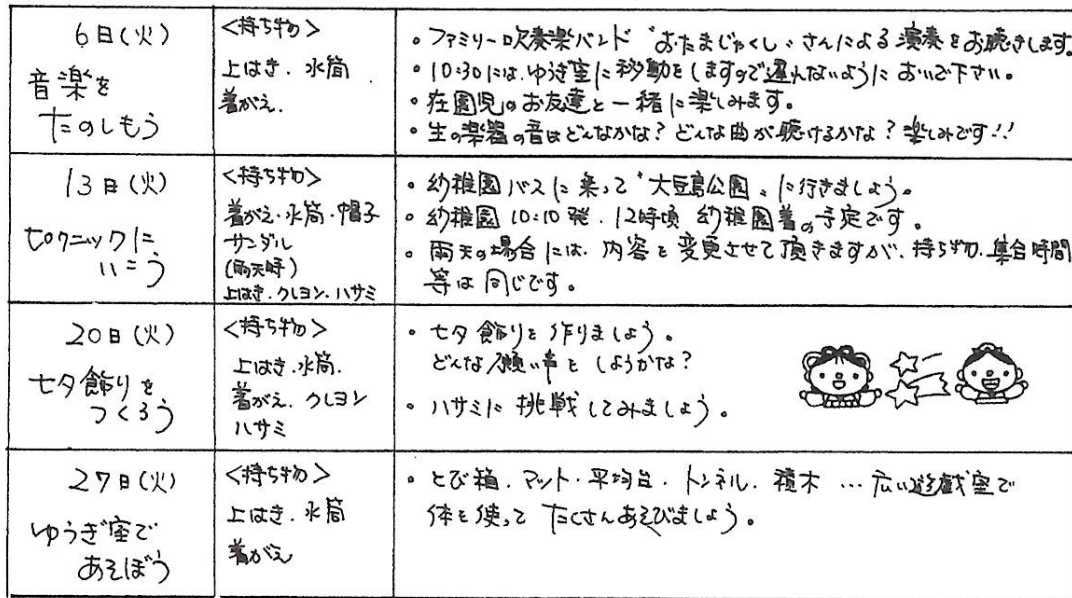 6日(火)
音楽を
たのしもう
<持ち物>
上ばき、水筒
着がえ.
・ファミリー吹奏楽バンド "おたまじゃくし" さんによる演奏をお聴きします。
・10:30には、ゆうぎ室に移動をしますので遅れないようにおいで下さい。
・在園児のお友達と一緒に楽しみます。
・生の楽器の音はどんなかな?どんな曲が聴けるかな?楽しみです!!
13日(火)
ピクニックに
いこう
<持ち物>
着がえ・水筒・帽子
サンダル
(雨天時)
上ばき、クレヨン、ハサミ
・幼稚園バスに乗って"大豆島公園"に行きましょう。
・幼稚園10:10発、12時頃 幼稚園着の予定です。
・雨天の場合には、内容を変更させて頂きますが、持ち物、集合時間
等は同じです。
20日(火)
七夕飾りを
つくろう
<持ち物>
上ばき、水筒、
着がえ、クレヨン
ハサミ
・七夕飾りを作りましょう。
どんな願い事をしようかな?
・ハサミに挑戦してみましょう。
27日(火)
ゆうぎ室で
あそぼう
<持ち物>
上ばき、水筒
着がえ
・とび箱、マット・平均台・トンネル、積木…広い遊戯室で
体を使ってたくさんあそびましょう。